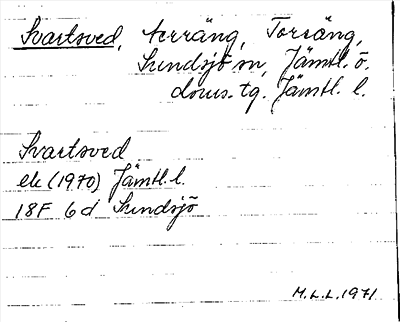 Svartsved, terräng, Torräng,
Sundsjö sn, Jämtl. ö.
doms. tg. Jämtl. l.
Svartsved
ek (1970) Jämtl. l.
18F 6d Sundsjö
M.L.L. 1971